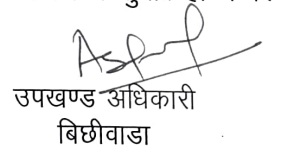 उपखण्ड अधिकारी
बिछीवाडा